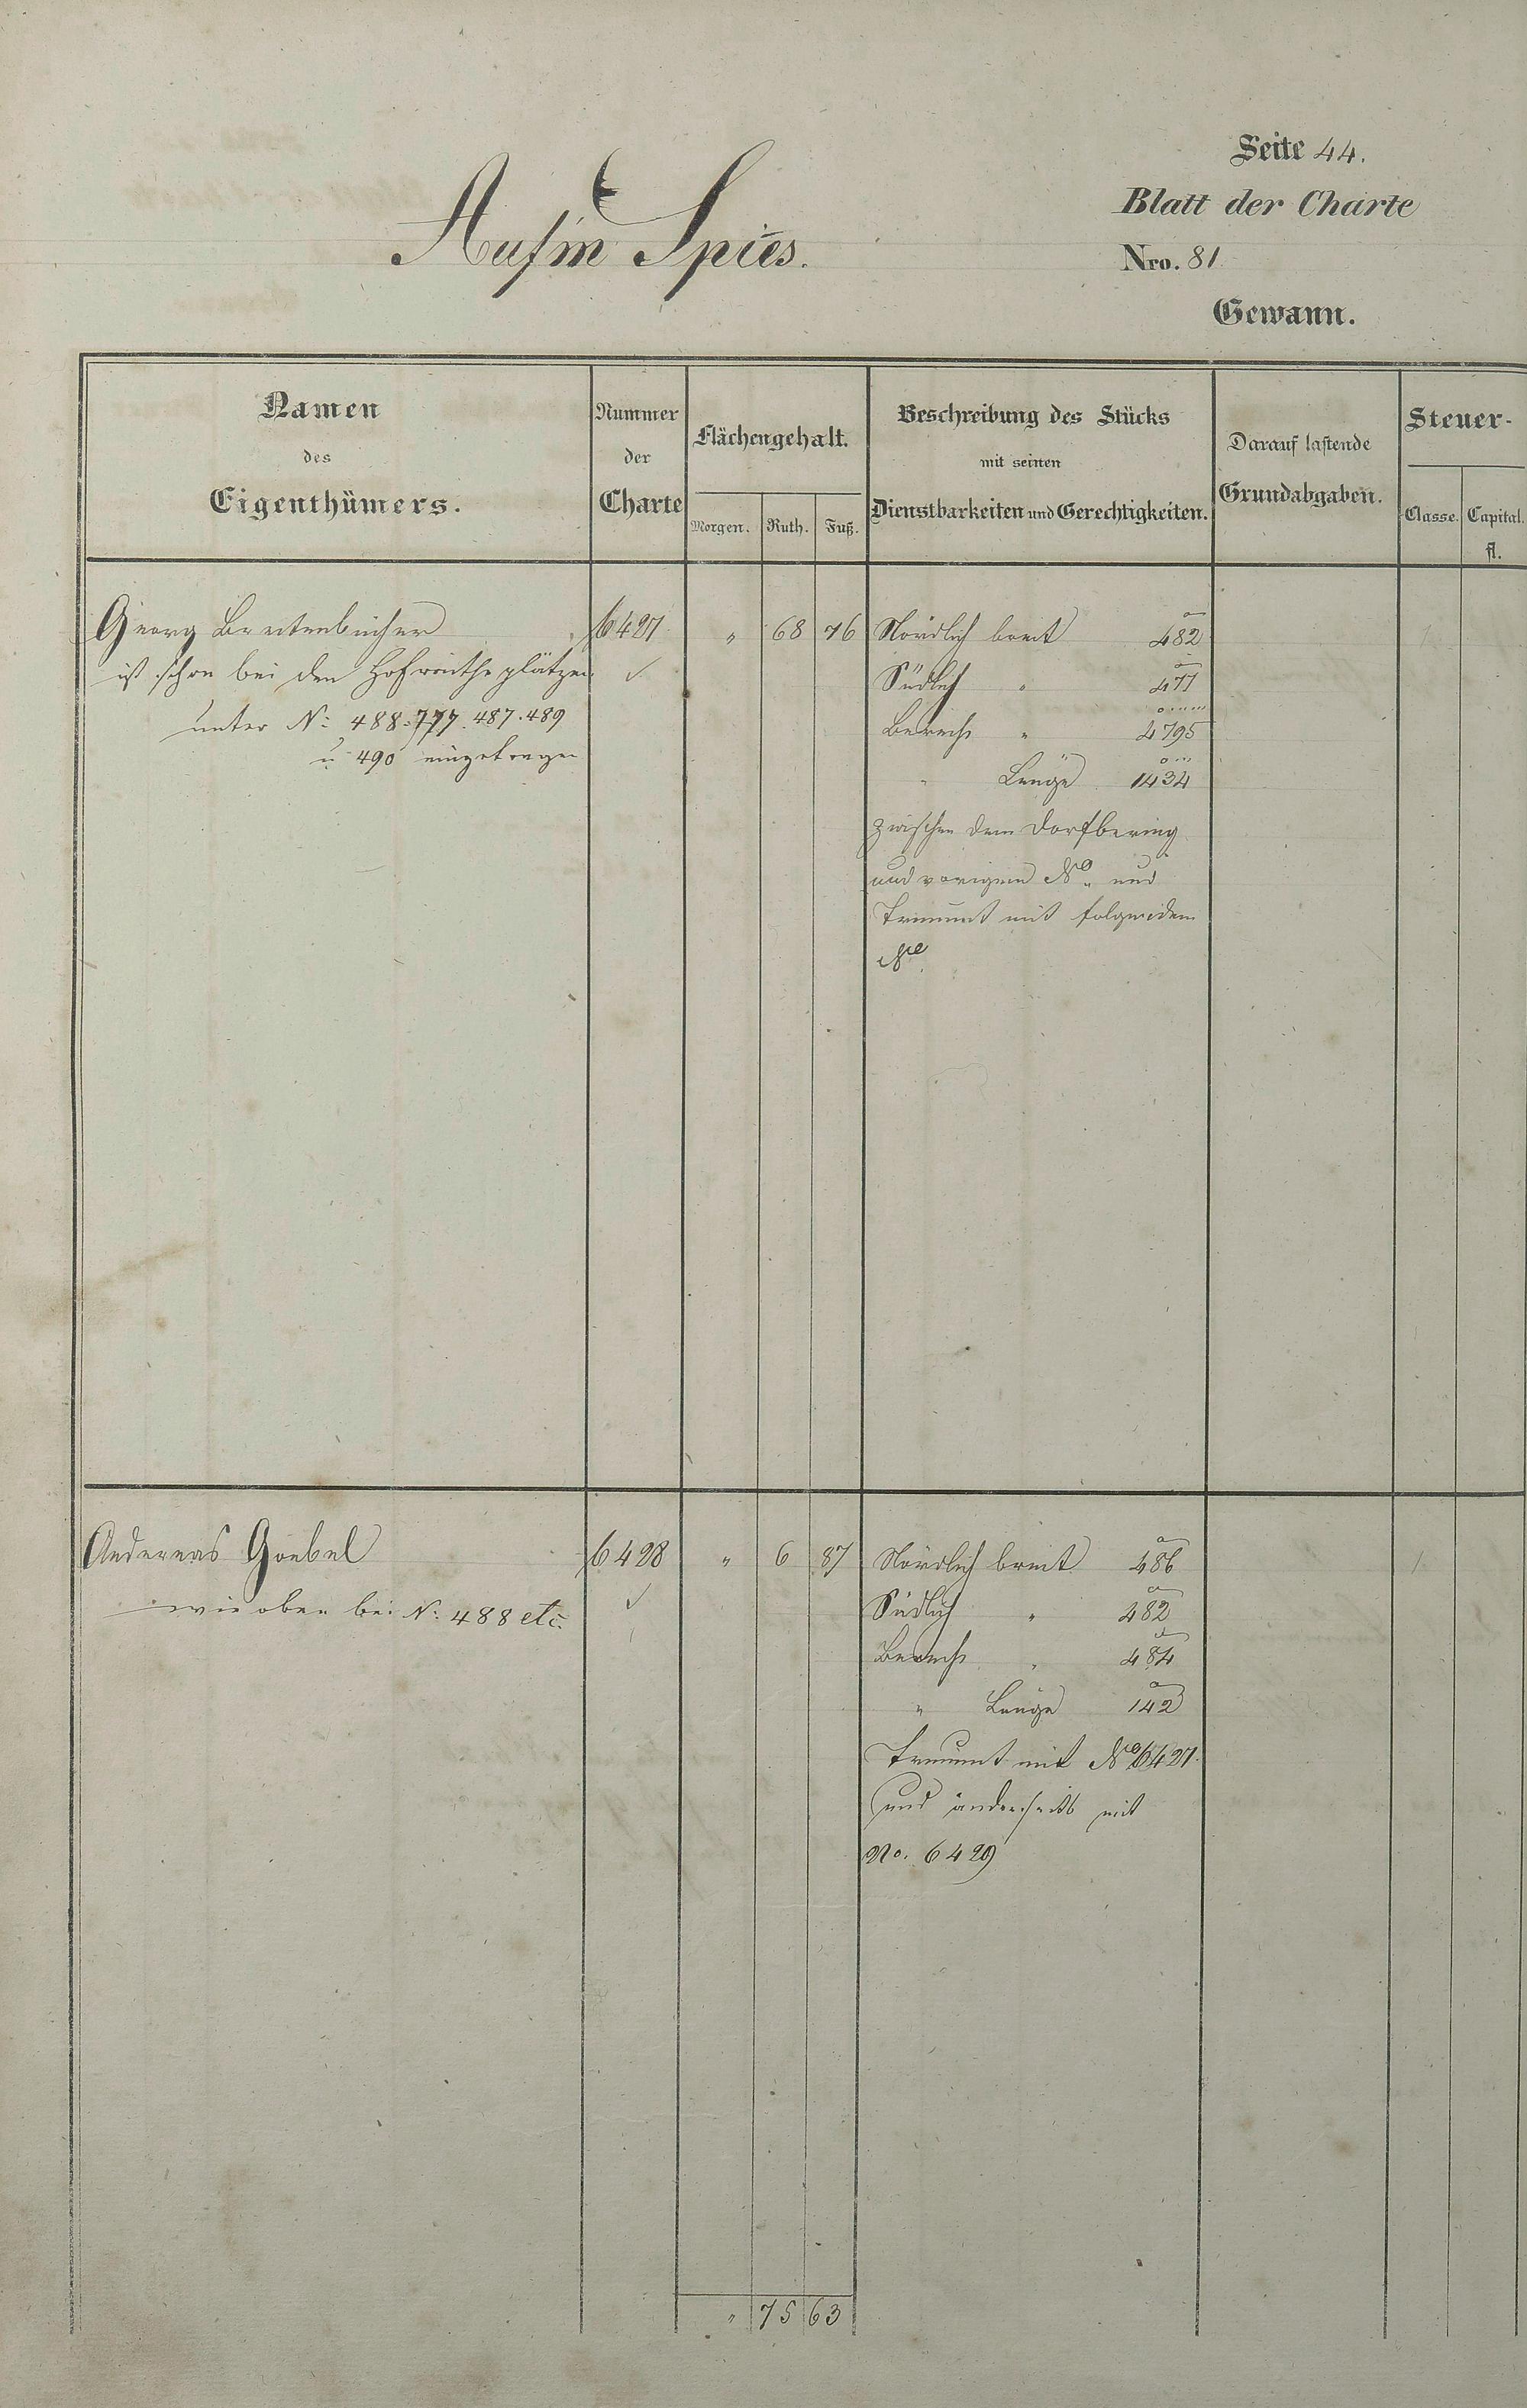 Seite 44.
Aufm Spies.
Blatt der Charte
Nro. 81
Gewann.
Namen des Eigenthümers.
Nummer der Charte
Flächengehalt.
Morgen. Ruth. Fuß.
Beschreibung des Stücks mit seinen Dienstbarkeiten und Gerechtigkeiten.
Darauf lastende Grundabgaben.
Steuer-
Classe. Capital.
fl.
Georg Breitenbücher 6427 " 68 76 Nördlich breit 482
ist schon bei den Hofreithe plätzen Südlich " 477
unter N: 488. 777. 487. 489 Berech " 4795
u 490 eingetragen " Länge 1434
zwischen dem Dorfbering
und vorigem No. und
mit folgendem
No
Andereas Goebel 6428 " 6 87 Nördlich breit 486 1
wie oben bei N: 488 etc. Südlich " 482
Berech " 484
" Länge 142
mit No 6427.
und anderseits mit
No. 6429
" 75 63